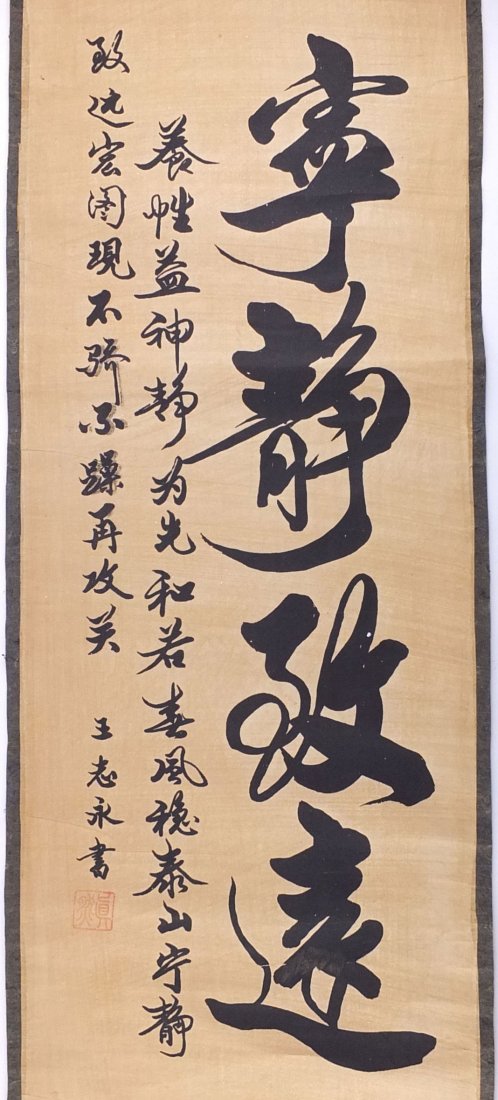 寧靜致遠
养性益神静为先和若春风稳泰山宁静
致远宏图現不骄不躁再攻关
王志永書